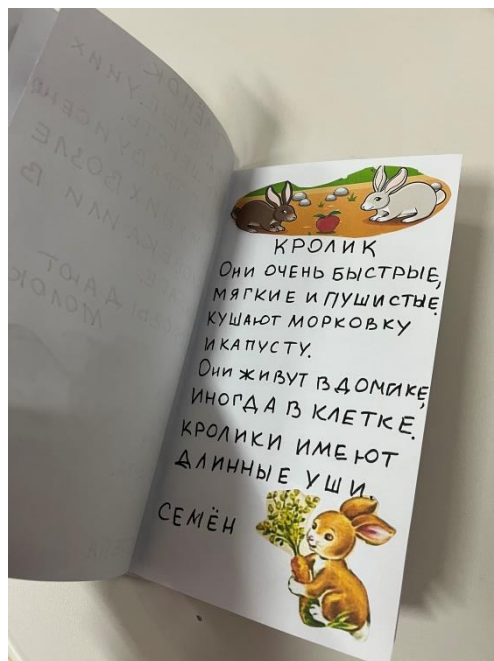 КРОЛИК
Они ОЧЕНЬ БЫСТРЫЕ,
МЯГКИЕ И ПУШИСТЫЕ.
КУШАЮТ МОРКОВКУ
И КАПУСТУ.
Они ЖИВУТ В ДОМИКЕ,
ИНОГДА В КЛЕТКЕ.
КРОЛИКИ ИМЕЮТ
ДЛИННЫЕ УШИ.
СЕМЁН